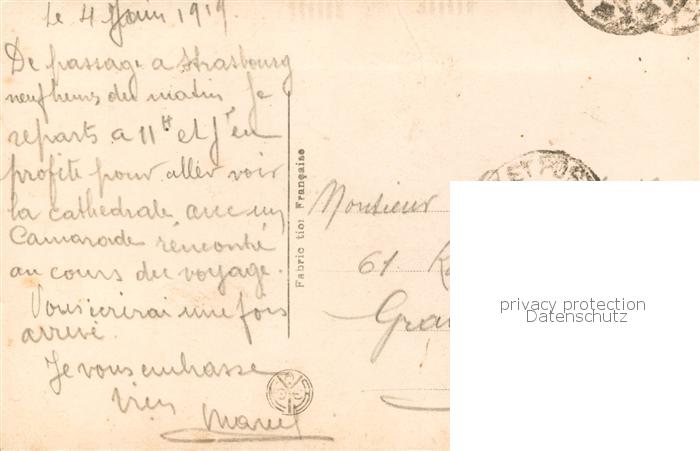 le 4 Juin 1919
De passage a Strasbourg
neuf heures du matin, Je
reparts a 11H et J'en
profite pour aller voir
la cathedrale avec un
Camarade rencontré
au cours du voyage.
Vous ecrirai une fois
arrivé.
Je vous embrasse
bien
Marcel
Fabrication Française
Monsieur
61 R
Gra
privacy protection
Datenschutz